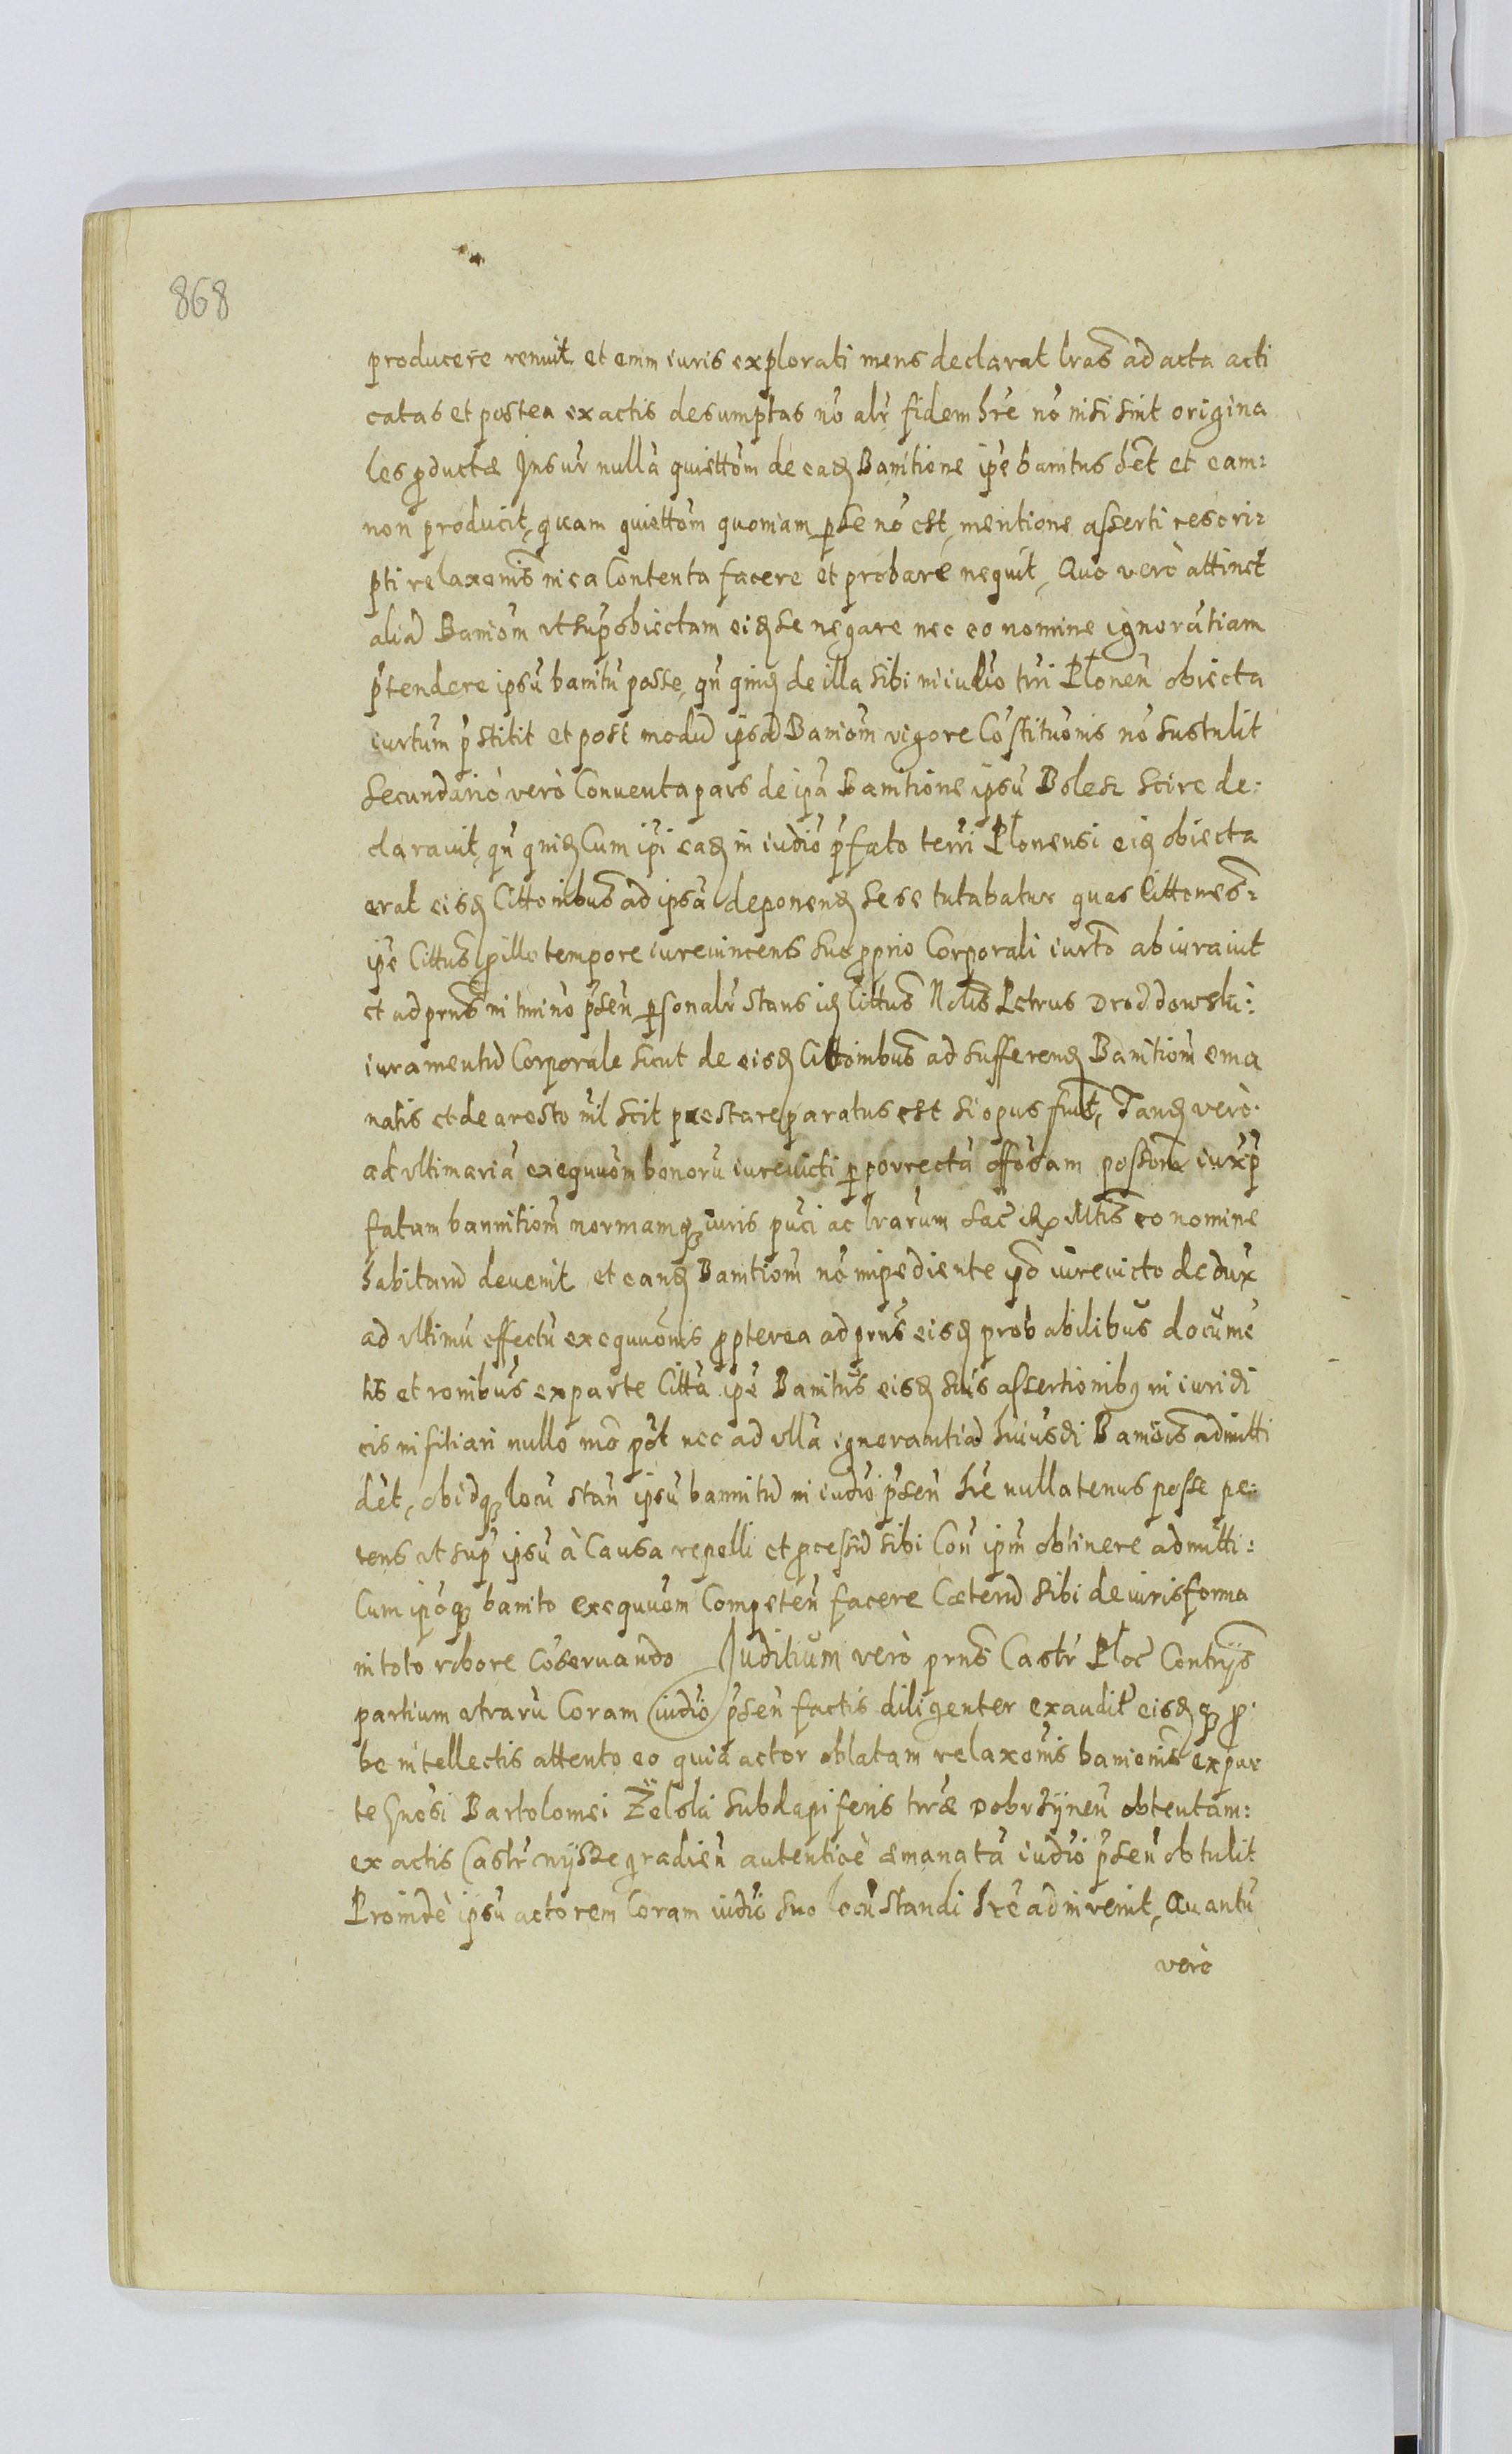 868
producere renuit et emm iuris explorati mens declarat lras ad acta acti
catas et postea ex actis desumptas no alr fidem hre no nisi sint origina
les productæ Insur nulla quiettom de eadem Banitione ipe banitus het et eam:
non producit, quam quiettom quoniam perse no est, mentione asserti rescri:
pti relaxonis in ea Contenta facere et probare nequit, Quo verò attinet
alia Baniom ut sup obiectam eidem se negare nec eo nomine ignorātiam
p̄tendere ipsū banitū posse, qn̄ quidem de illa sibi in iudio trri Plonen̄ obiecta
iurtum p̄stitit et post modū ipsā Baniom vigore Cōstituonis nō sustulit
Secundariò verò Conuenta pars de ipa Banitione ipsū Bolesz scire de:
clarauit, qn̄ quidem Cum ipi eadem in iudio p̄fato terri Plonensi eidem obiecta
erat eisdem Cittonibus ad ipsā deponendam sese tutabatur quas Cittones:
ipe Cittus pro illo tempore iureuincens suo proprio Corporali iurto abiurauit
et ad prns in tmino p̄sen̄ personalr stans idem Cittus Nobilis Petrus Drozdowski:
iuramentū Corporale sicut de eisdem Cittonibus ad sufferendam Banitiom ema
natis et de aresto nil scit præstare paratus est si opus fuit, Tandem verò.
ad ultimariā exequuom bonorū iureuicti per porrectā offōsam possōne iuxp̄
fatam bannitiom normamque iuris puci ac lrarum Sac R Mtis eo nomine
habitarū deuenit et eandem Banitiom nō impediente ipō iureuicto dedux
ad ultimū effectū exequuonis propterea ad prns eisdem probabilibus documē
tis et ronibus ex parte Citta ipe Banitus eisdem suis assertionibus in iuridi
cis infitiari nullo mō pōt nec ad ullā ignorantiā huiusdi Baniois admitti
dèt, ob idque locū stan̄ ipsū bannitū in iudio p̄sen̄ hre nullatenus posse pe:
tens ut sup ipsū à Causa repelli et processū sibi Con̄ ipm obtinere admitti:
Cum ipoque banito exequuom Competen̄ facere Cæterū sibi de iuris forma
in toto robore Cōseruando Juditium verò prns Castr Ploc Contrijs
partium utrarū Coram iudio p̄sen̄ factis diligenter exauditis eisdemque pro:
be intellectis attento eo quia actor oblatam relaxonis banionis ex par
te Gnosi Bartolomei Zelski Subdapiferis trræ Dobrzijnen̄ obtentam:
ex actis Castr wijszegradien̄ autenticè emanatā iudio p̄sen̄ obtulit
Proindè ipsū actorem Coram iudio suo locū standi hre adinvenit, Quantū
verò